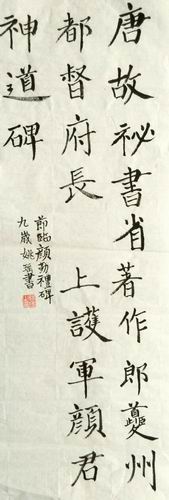 唐故祕書省著作郎夔州
都督府長 上護軍顏君
神道碑
節臨顏勤禮碑
九歲姚瑶書